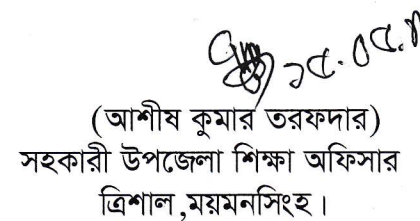 ১৫.০৫.
(আশীষ কুমার তরফদার)
সহকারী উপজেলা শিক্ষা অফিসার
ত্রিশাল,ময়মনসিংহ।